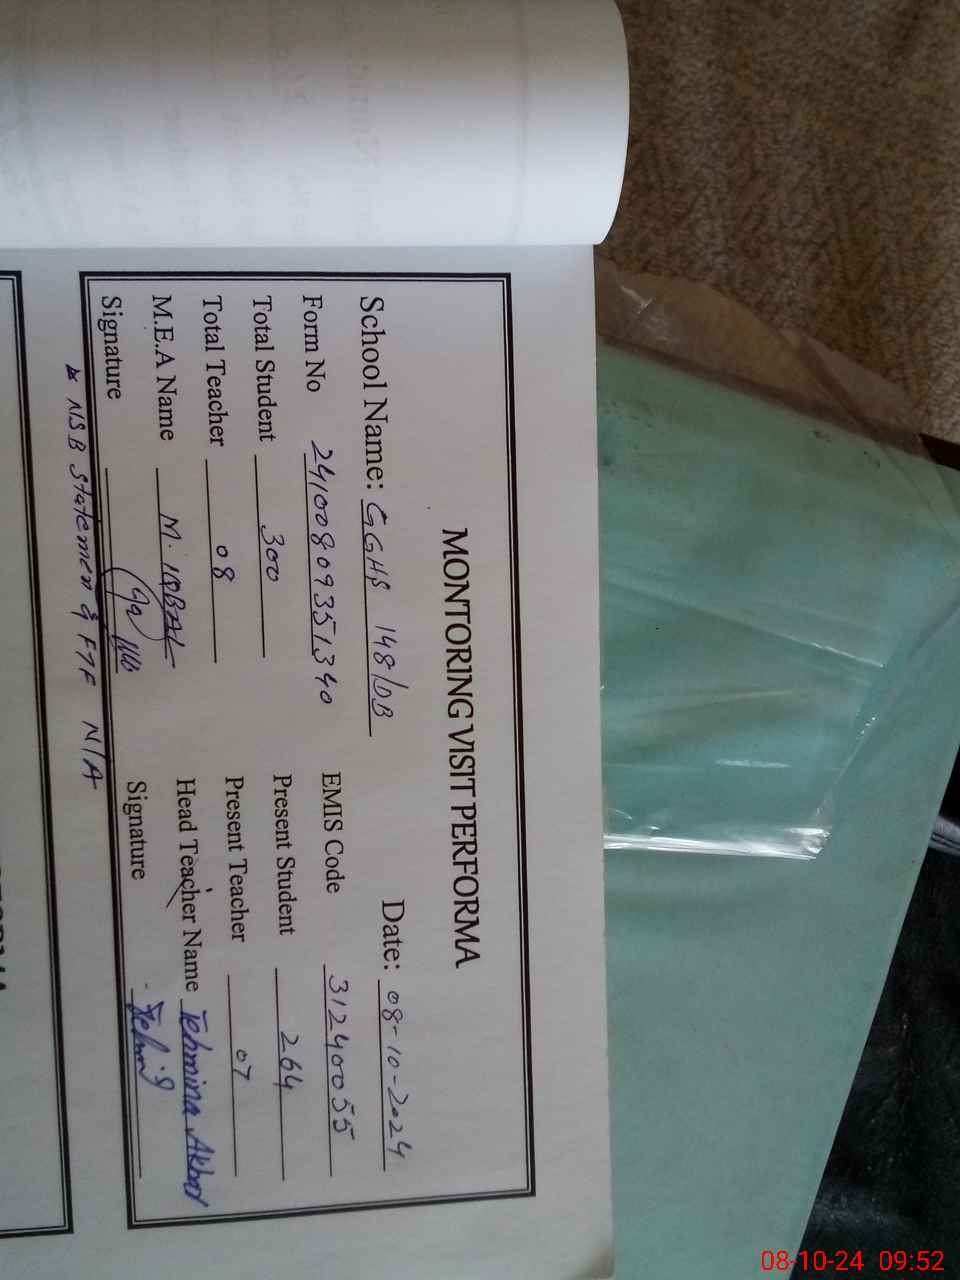 MONTORING VISIT PERFORMA
Date: 08-10-2024
School Name: GGHS 148/DB
Form No 24100809351340 EMIS Code 31240055
Total Student 300 Present Student 264
Total Teacher 08 Present Teacher 07
M.E.A Name M. IQBAL Head Teacher Name Tehmina Akbar
Signature Signature
NSB Statement & FTF N/A
08-10-24 09:52